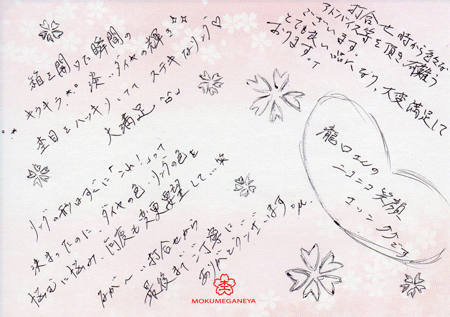 箱を開けた瞬間の
キラキラ 淡いダイヤの輝き
杢目もハッキリしてて ステキなリング♡
大満足
打合せ時から色々な
アドバイス等を頂き有難う
ございます。
とても良い品になり、大変満足して
おります。
リングの形はすぐに「これ!」って
決まったのに ダイヤの色、リングの色を
悩みに悩み、何度も変更希望して…
なが〜い打合せから
最後まで ご丁寧に
ありがとうございます。
瀧口さんの
ニコニコ笑顔
MOKUMEGANEYA